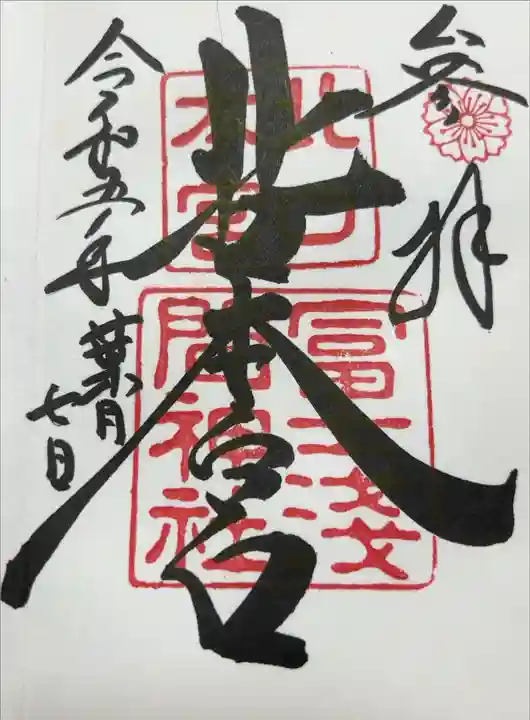 参拝
北口
本宮
冨士浅
間神社
北口本宮
令和五年葉月
七日